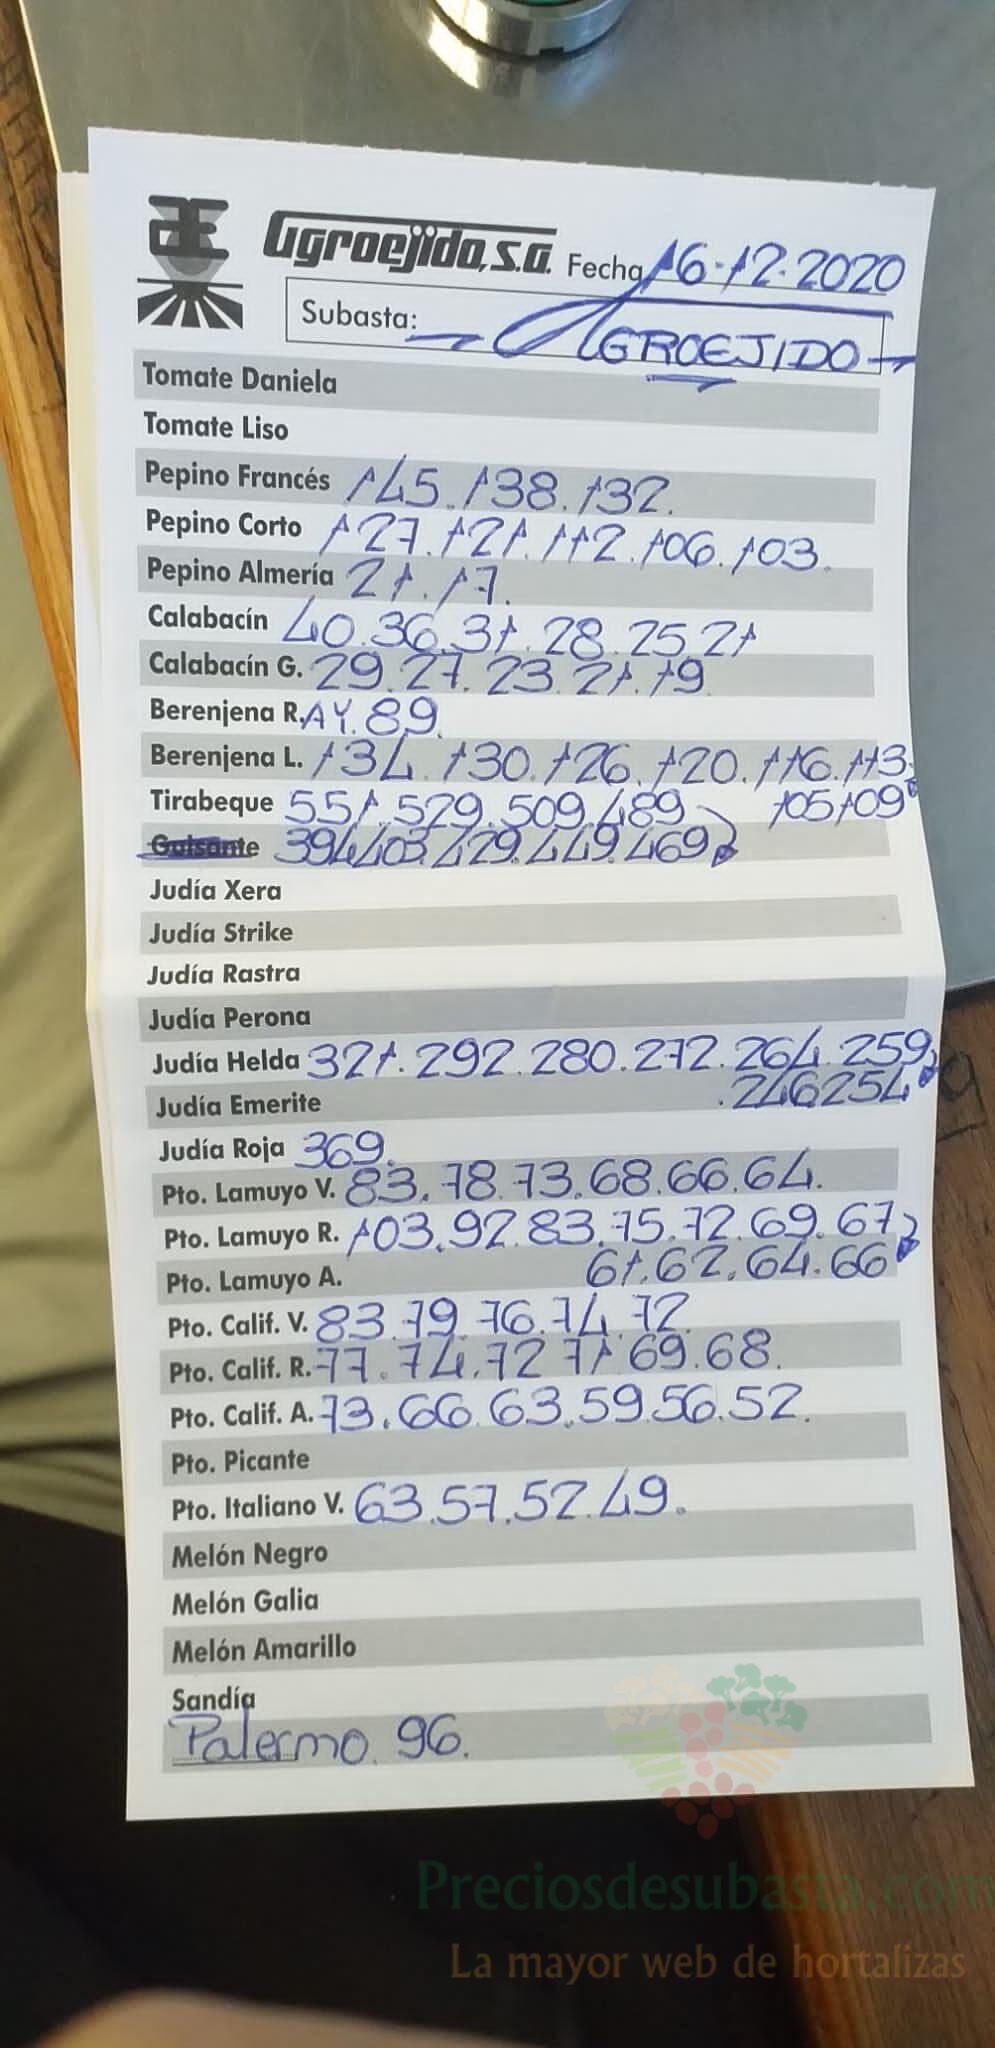 Agroejido, S.A. Fecha 16-12-2020
Subasta: AGROEJIDO
Tomate Daniela
Tomate Liso
Pepino Francés 145.138.132.
Pepino Corto 127.121.112.106.103.
Pepino Almería 21.17.
Calabacín 40.36.31.28.25.21
Calabacín G. 29.27.23.21.19
Berenjena R. AY.89.
Berenjena L. 134.130.126.120.116.113.
105.109
Tirabeque 551.529.509.489
Guisante 394.403.429.449.469
Judía Xera
Judía Strike
Judía Rastra
Judía Perona
Judía Helda 321.292.280.272.264.259
Judía Emerite .246.254
Judía Roja 369.
Pto. Lamuyo V. 83.78.73.68.66.64.
Pto. Lamuyo R. 103.92.83.75.72.69.67
Pto. Lamuyo A. 61.62.64.66
Pto. Calif. V. 83.79.76.74.72.
Pto. Calif. R. 77.74.72 71 69.68.
Pto. Calif. A. 73.66 63.59.56.52.
Pto. Picante
Pto. Italiano V. 63.57.52.49.
Melón Negro
Melón Galia
Melón Amarillo
Sandía
Palermo. 96.
Preciosdesubasta.com
La mayor web de hortalizas